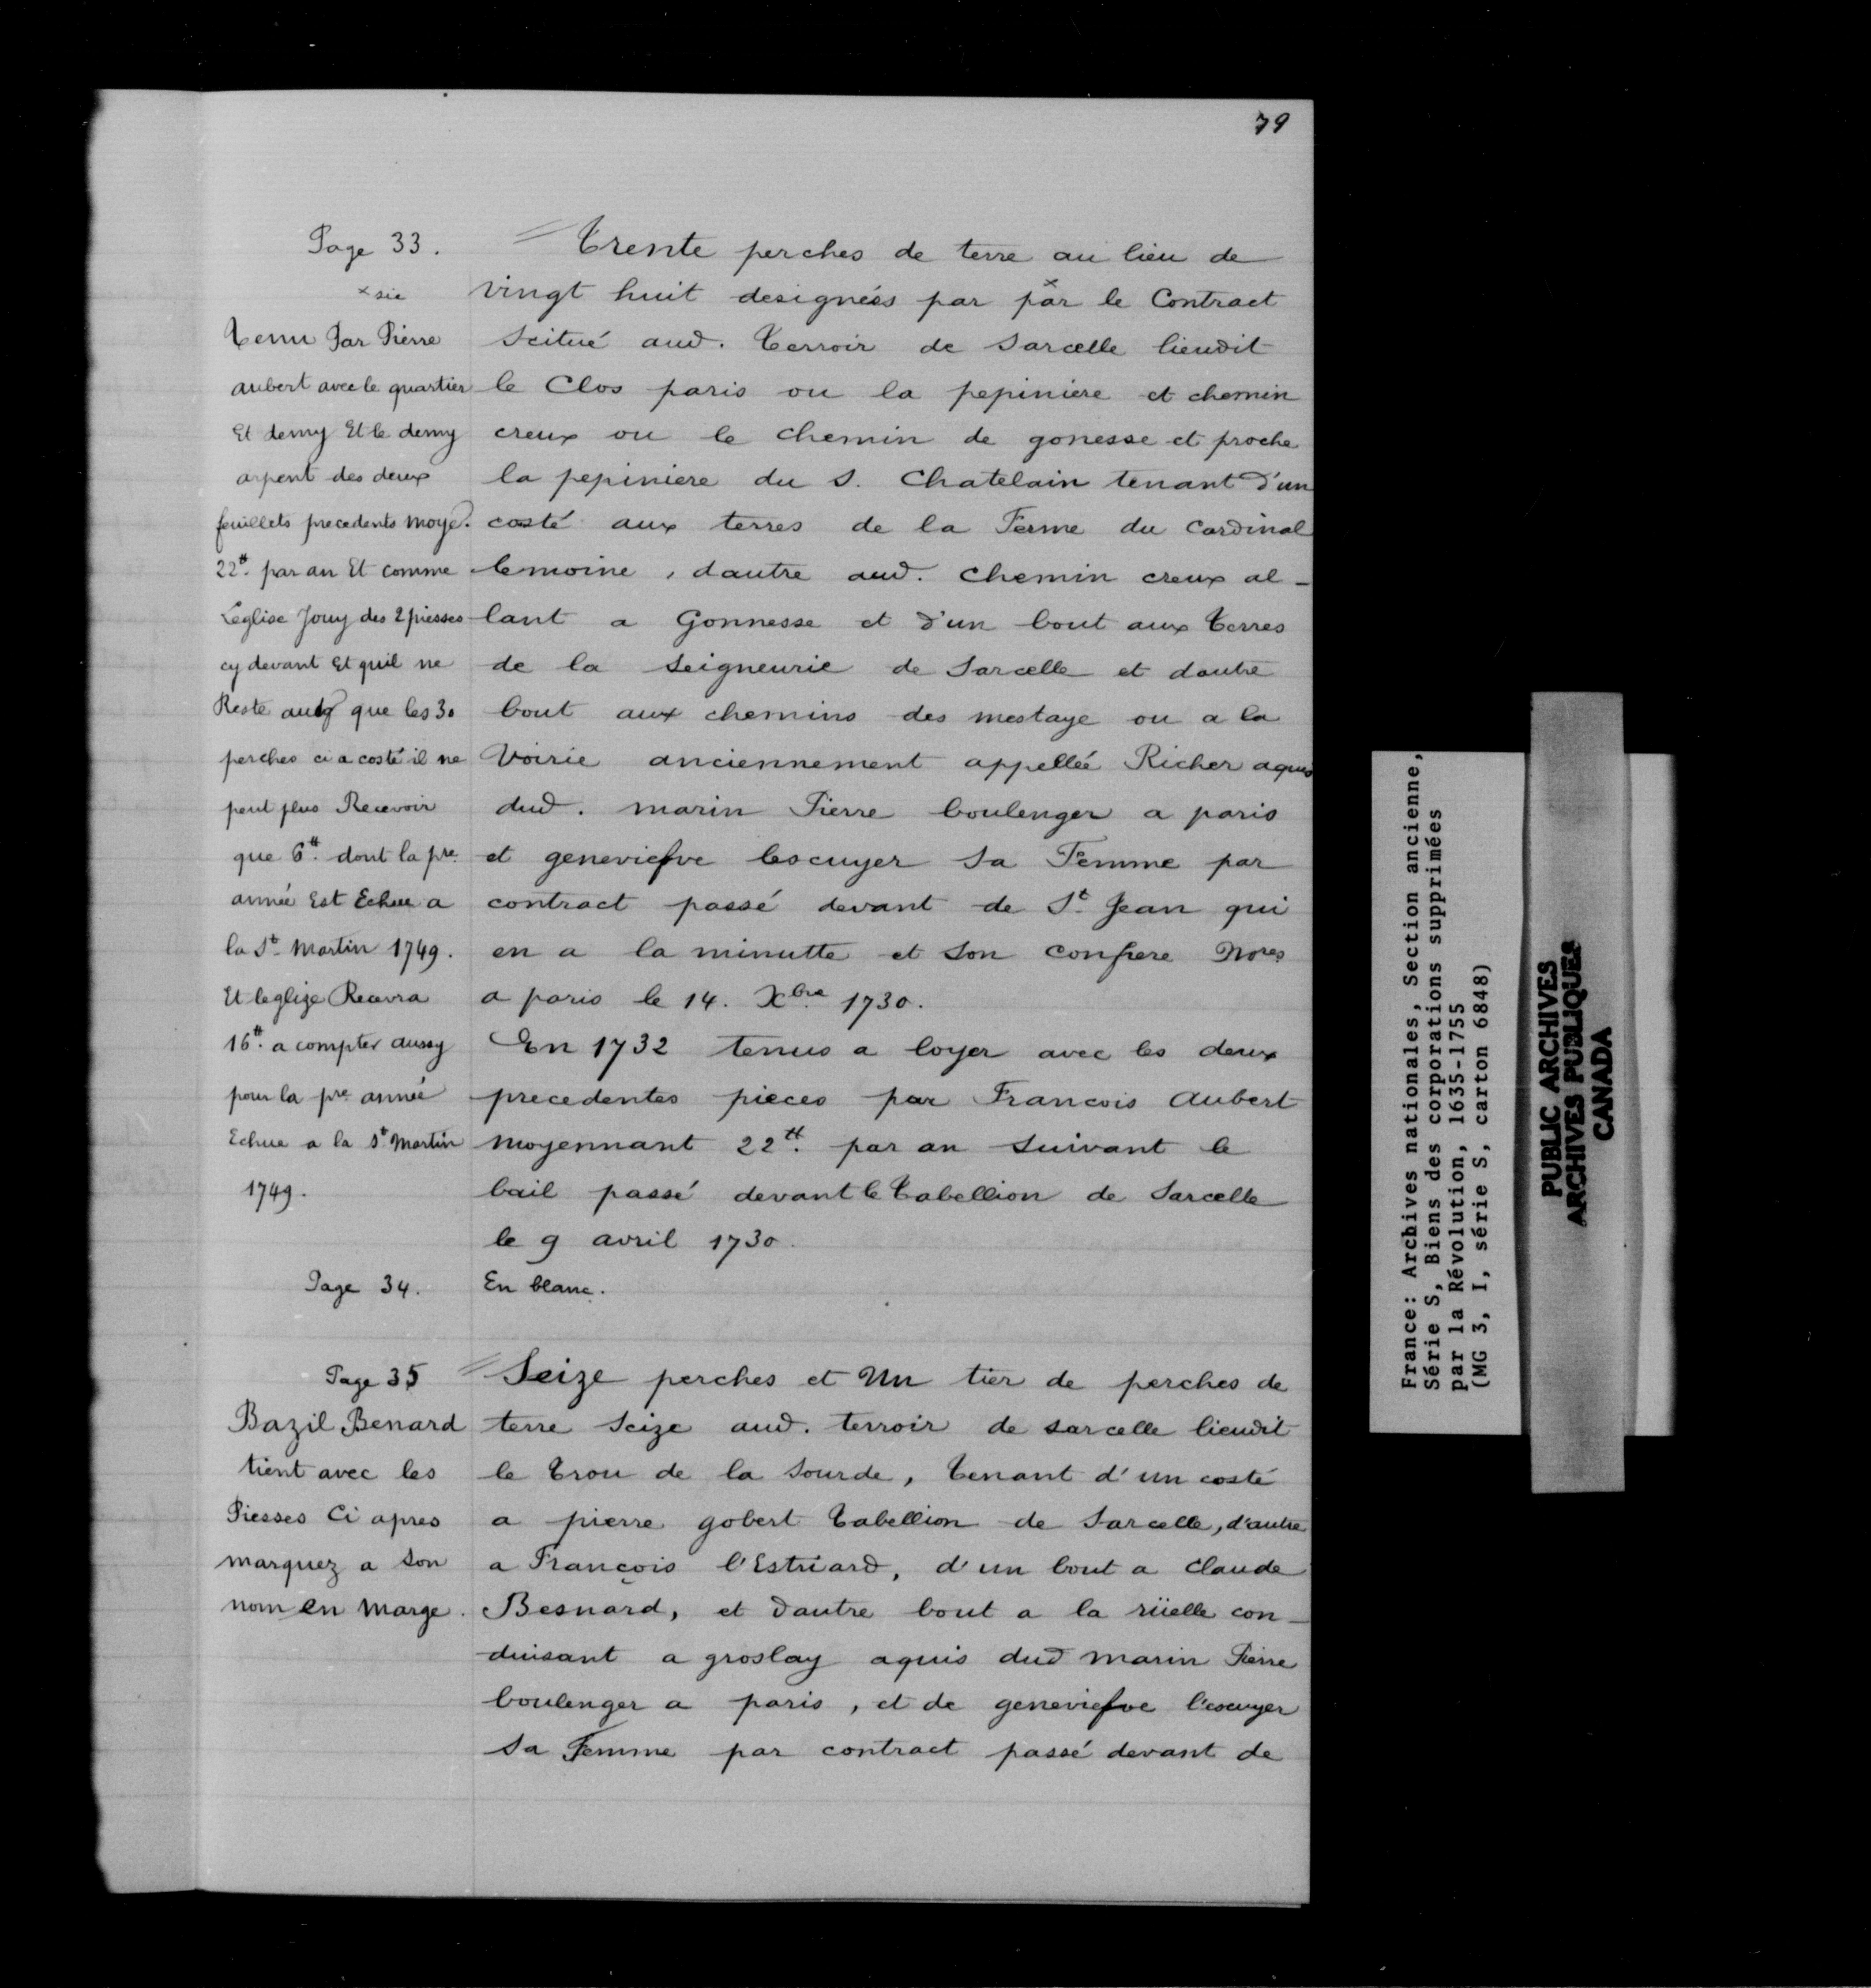 79
Page 33.
× sic
Tenu Par Pierre
aubert avec le quartier
Et demy Et le demy
arpent des deux
feuillets precedents moyē.
22# par an Et comme
Leglise Jouy des 2 piesses
cy devant Et quil ne
Reste aud. que les 30
perches ci a costé il ne
peut plus Recevoir
que 6# dont la pre
année Est Echue a
la St Martin 1749.
Et leglize Recevra
16# a compter aussy
pour la pre année
Echue a la St Martin
1749.
Trente perches de terre au lieu de
vingt huit designées par par× le Contract
Scitué aud. Terroir de Sarcelle lieudit
le Clos paris ou la pepiniere et chemin
creux ou le chemin de gonesse et proche
la pepiniere du S. Chatelain tenant d'un
costé aux terres de la Ferme du Cardinal
lemoine, dautre aud. chemin creux al-
lant a Gonnesse et d'un bout aux Terres
de la Seigneurie de Sarcelle et dautre
bout aux chemins des mestaye ou a la
Voirie anciennement appellée Richer aquis
dud. marin Pierre boulenger a paris
et geneviefve lescuyer Sa Femme par
contract passé devant de St Jean qui
en a la minutte et Son confrere Nores
a paris le 14. Xbre 1730.
En 1732 tenus a loyer avec les deux
precedentes pieces par Francois Aubert
moyennant 22# par an Suivant le
bail passé devant le Tabellion de Sarcelle
le 9 avril 1730.
Page 34.
En blanc.
Page 35
Bazil Benard
tient avec les
Piesses Ci apres
marquez a Son
nom en Marge.
Seize perches et Un tier de perches de
terre Scize aud. terroir de sarcelle lieudit
le Trou de la Sourde, Tenant d'un costé
a pierre gobert Tabellion de Sarcelle, d'autre
a François l'Estriard, d'un bout a claude
Besnard, et dautre bout a la rüelle con-
duisant a groslay aquis dud marin Pierre
boulenger a paris, et de geneviefve l'escuyer
Sa Femme par contract passé devant de
France: Archives nationales, Section ancienne,
Série S, Biens des corporations supprimées
par la Révolution, 1635-1755
(MG 3, I, série S, carton 6848)
PUBLIC ARCHIVES
ARCHIVES PUBLIQUES
CANADA